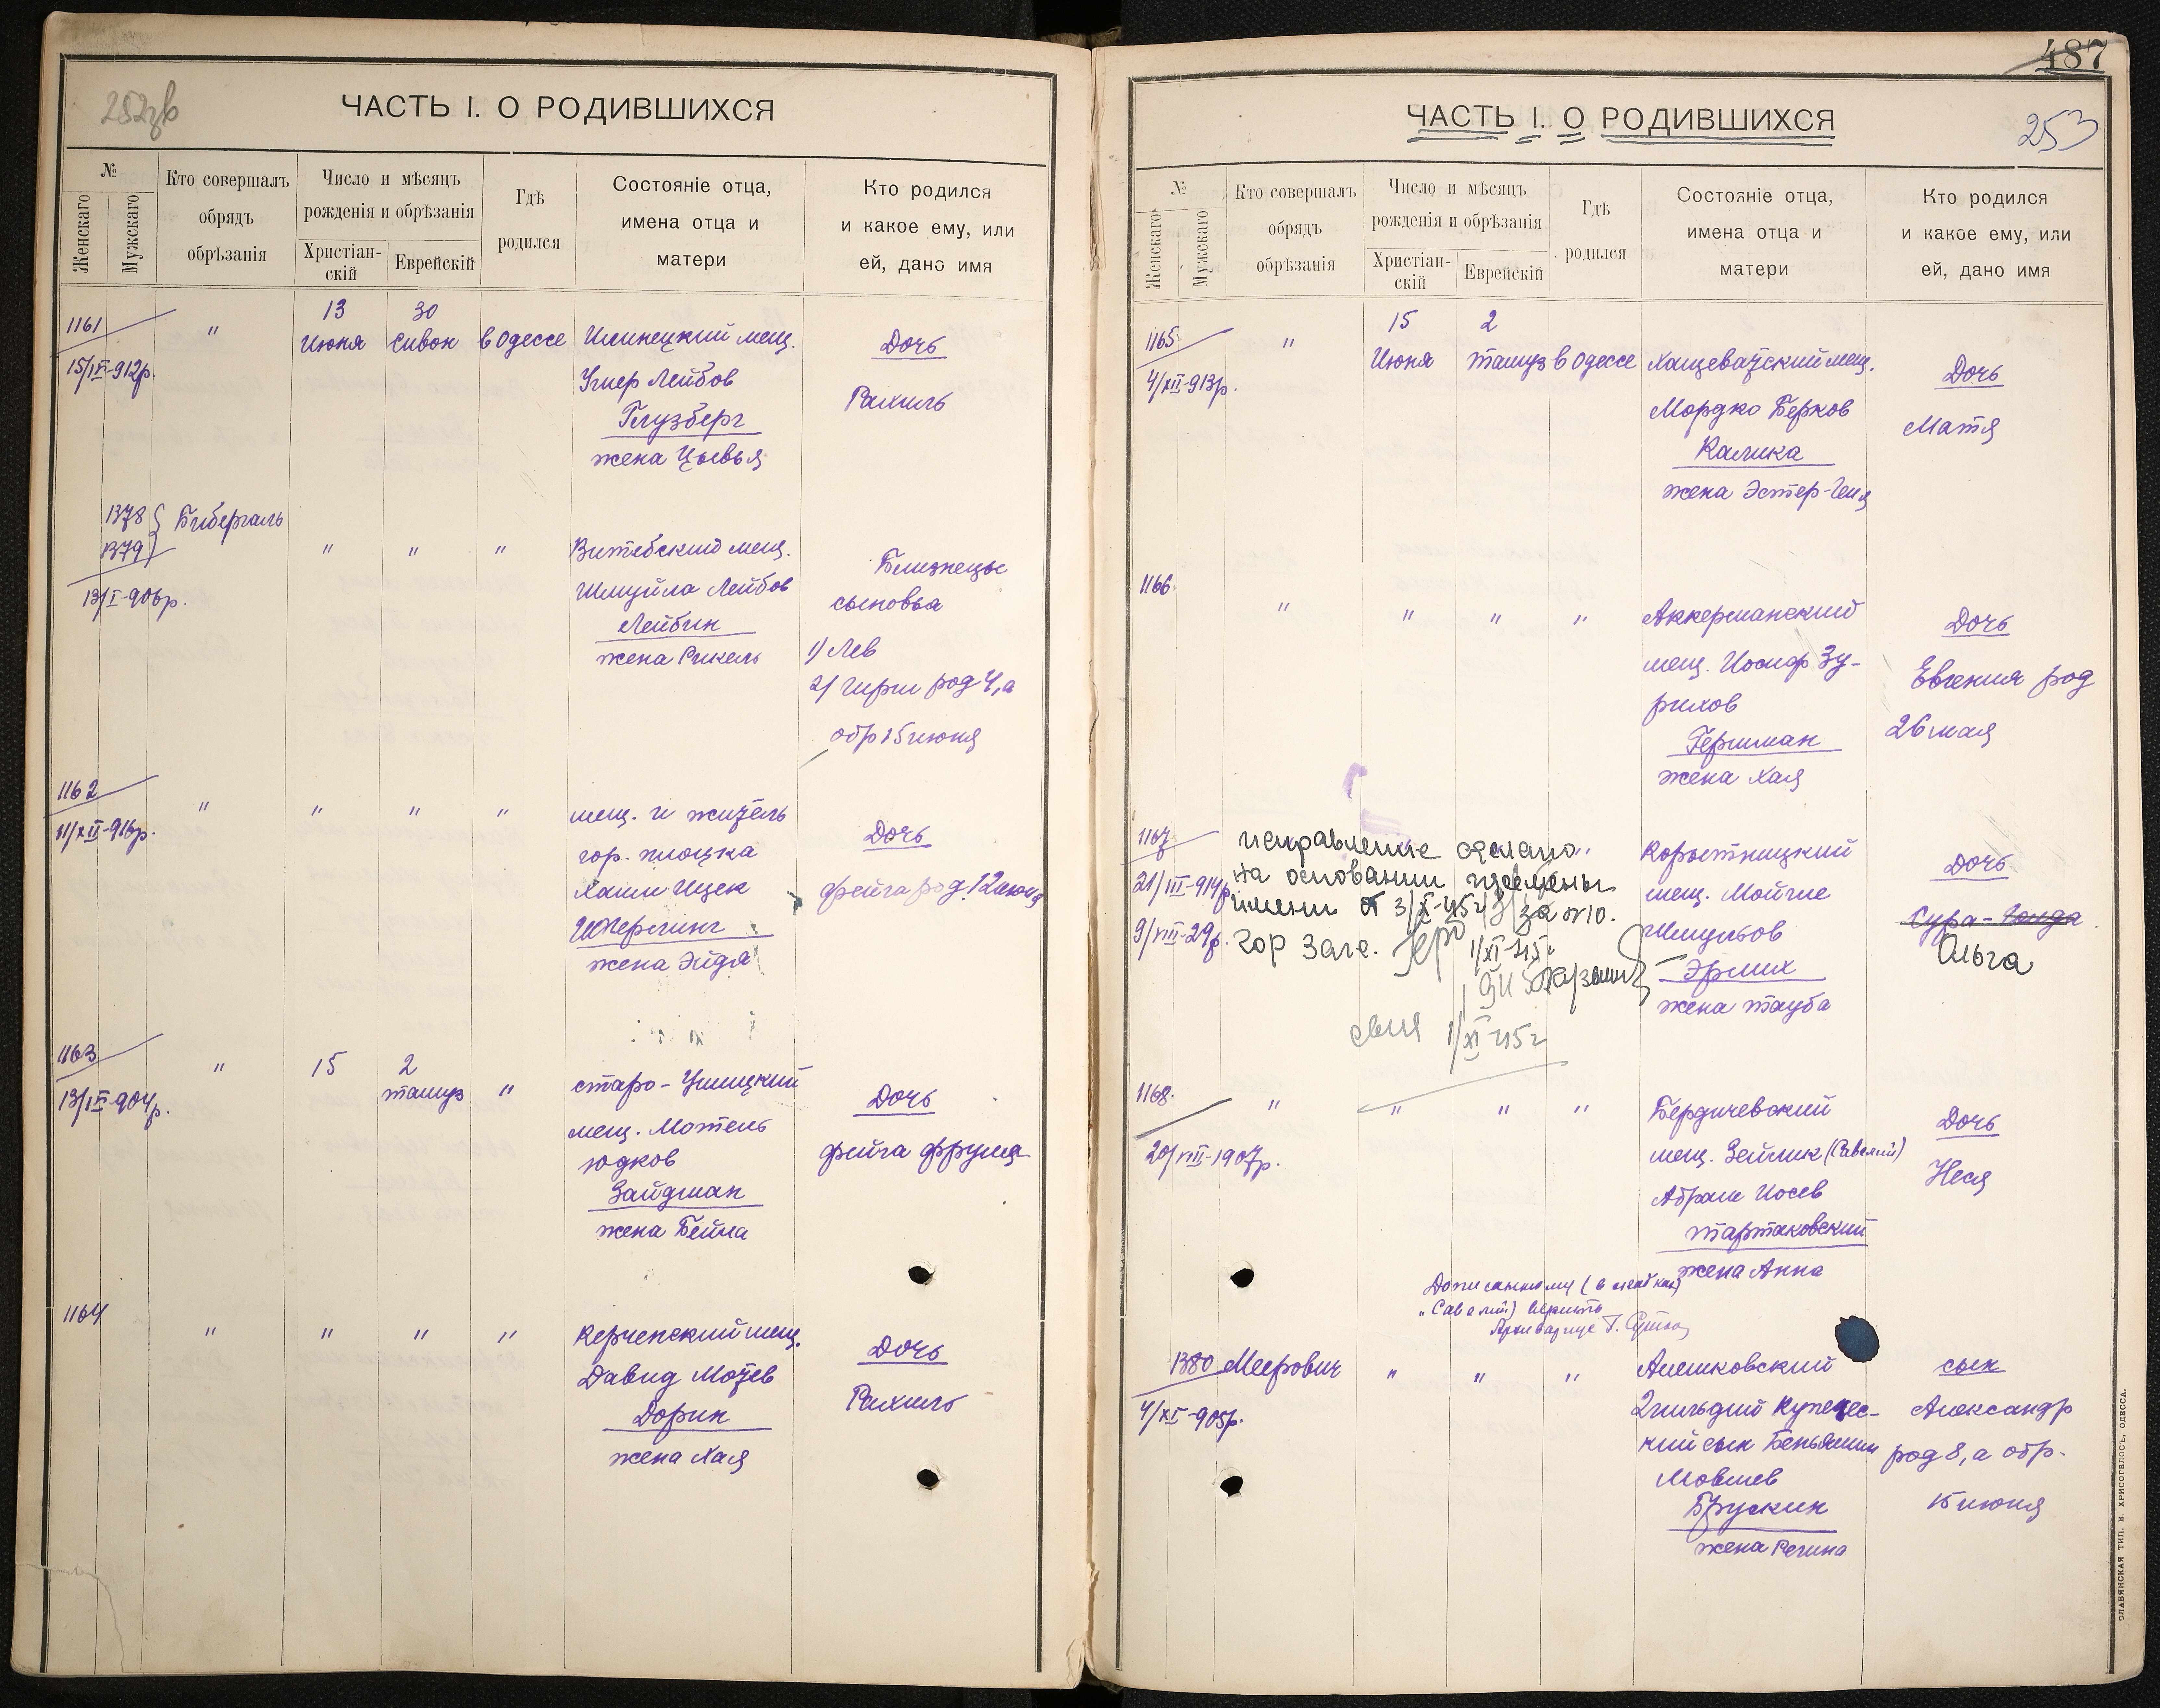 252зв
ЧАСТЬ I. О РОДИВШИХСЯ
№
Женскаго
Мужскаго
Кто совершалъ
обрядъ
обрѣзанія
Число и мѣсяцъ
рожденія и обрѣзанія
Христіан-
скій
Еврейскій
Гдѣ
родился
Состояніе отца,
имена отца и
матери
Кто родился
и какое ему, или
ей, дано имя
1161
15/IX-912р.
"
13
Июня
30
Сивон
в Одессе
Илинецкий мещ.
Умер Лейбов
Глузберг
жена Цывья
Дочь
Рахиль
1378
1379
13/I-906р.
Бибергаль
" " "
Витебский мещ.
Шмуйла Лейбов
Лейбин
жена Рикель
Близнецы
сыновья
1) Лев
2) Гирш род 4, а
обр 15 июня
1162
11/XII-916р.
" " " "
мещ. и житель
гор. Плоцка
Хаим Ицек
Штерлинг
жена Эйдля
Дочь
Фейга род. 12 июня
1163
13/IX-904р.
"
15
2
тамуз
"
Старо-Ушицкий
мещ. Мотель
Юдков
Зайдман
жена Бейла
Дочь
Фейга Фрума
1164
" " " "
Керченский мещ.
Давид Мотев
Дорин
жена Хая
Дочь
Рахиль
487
ЧАСТЬ I. О РОДИВШИХСЯ
253
№
Женскаго
Мужскаго
Кто совершалъ
обрядъ
обрѣзанія
Число и мѣсяцъ
рожденія и обрѣзанія
Христіан-
скій
Еврейскій
Гдѣ
родился
Состояніе отца,
имена отца и
матери
Кто родился
и какое ему, или
ей, дано имя
1165
4/XII-913р.
"
15
Июня
2
тамуз
в Одессе
Хащеватский мещ.
Мордко Берков
Калика
жена Эстер-Геня
Дочь
Матя
1166
" " " "
Аккерманский
мещ. Иосиф Зу-
рихов
Гершман
жена Хая
Дочь
Евгения род
26 мая
1167
21/III-914р.
9/VIII-29р.
исправление сделано
на основании перемены
имени от 3/X-45г за №10.
Гор Загс.
1/XI-45г
1/XI 45г
Корыстницкий
мещ. Мойше
Шмульов
Эрлих
жена Тауба
Дочь
Сура-Гольда
Ольга
1168
20/VIII-1907р.
" " " "
Бердичевский
мещ. Зейлик (Савелий)
Абрам Иосев
Тартаковский
жена Анна
Дочь
Неся
Дописанному
"Савелий) верить
Архивариус Г.
1380
4/XI-905р.
Меерович
" " "
Алешковский
2 гильдии купечес-
кий сын Беньямин
Мовшев
Брускин
жена Регина
сын
Александр
род 8, а обр.
15 июня
СЛАВЯНСКАЯ ТИП. Н. ХРИСОГЕЛОСЪ, ОДЕССА.